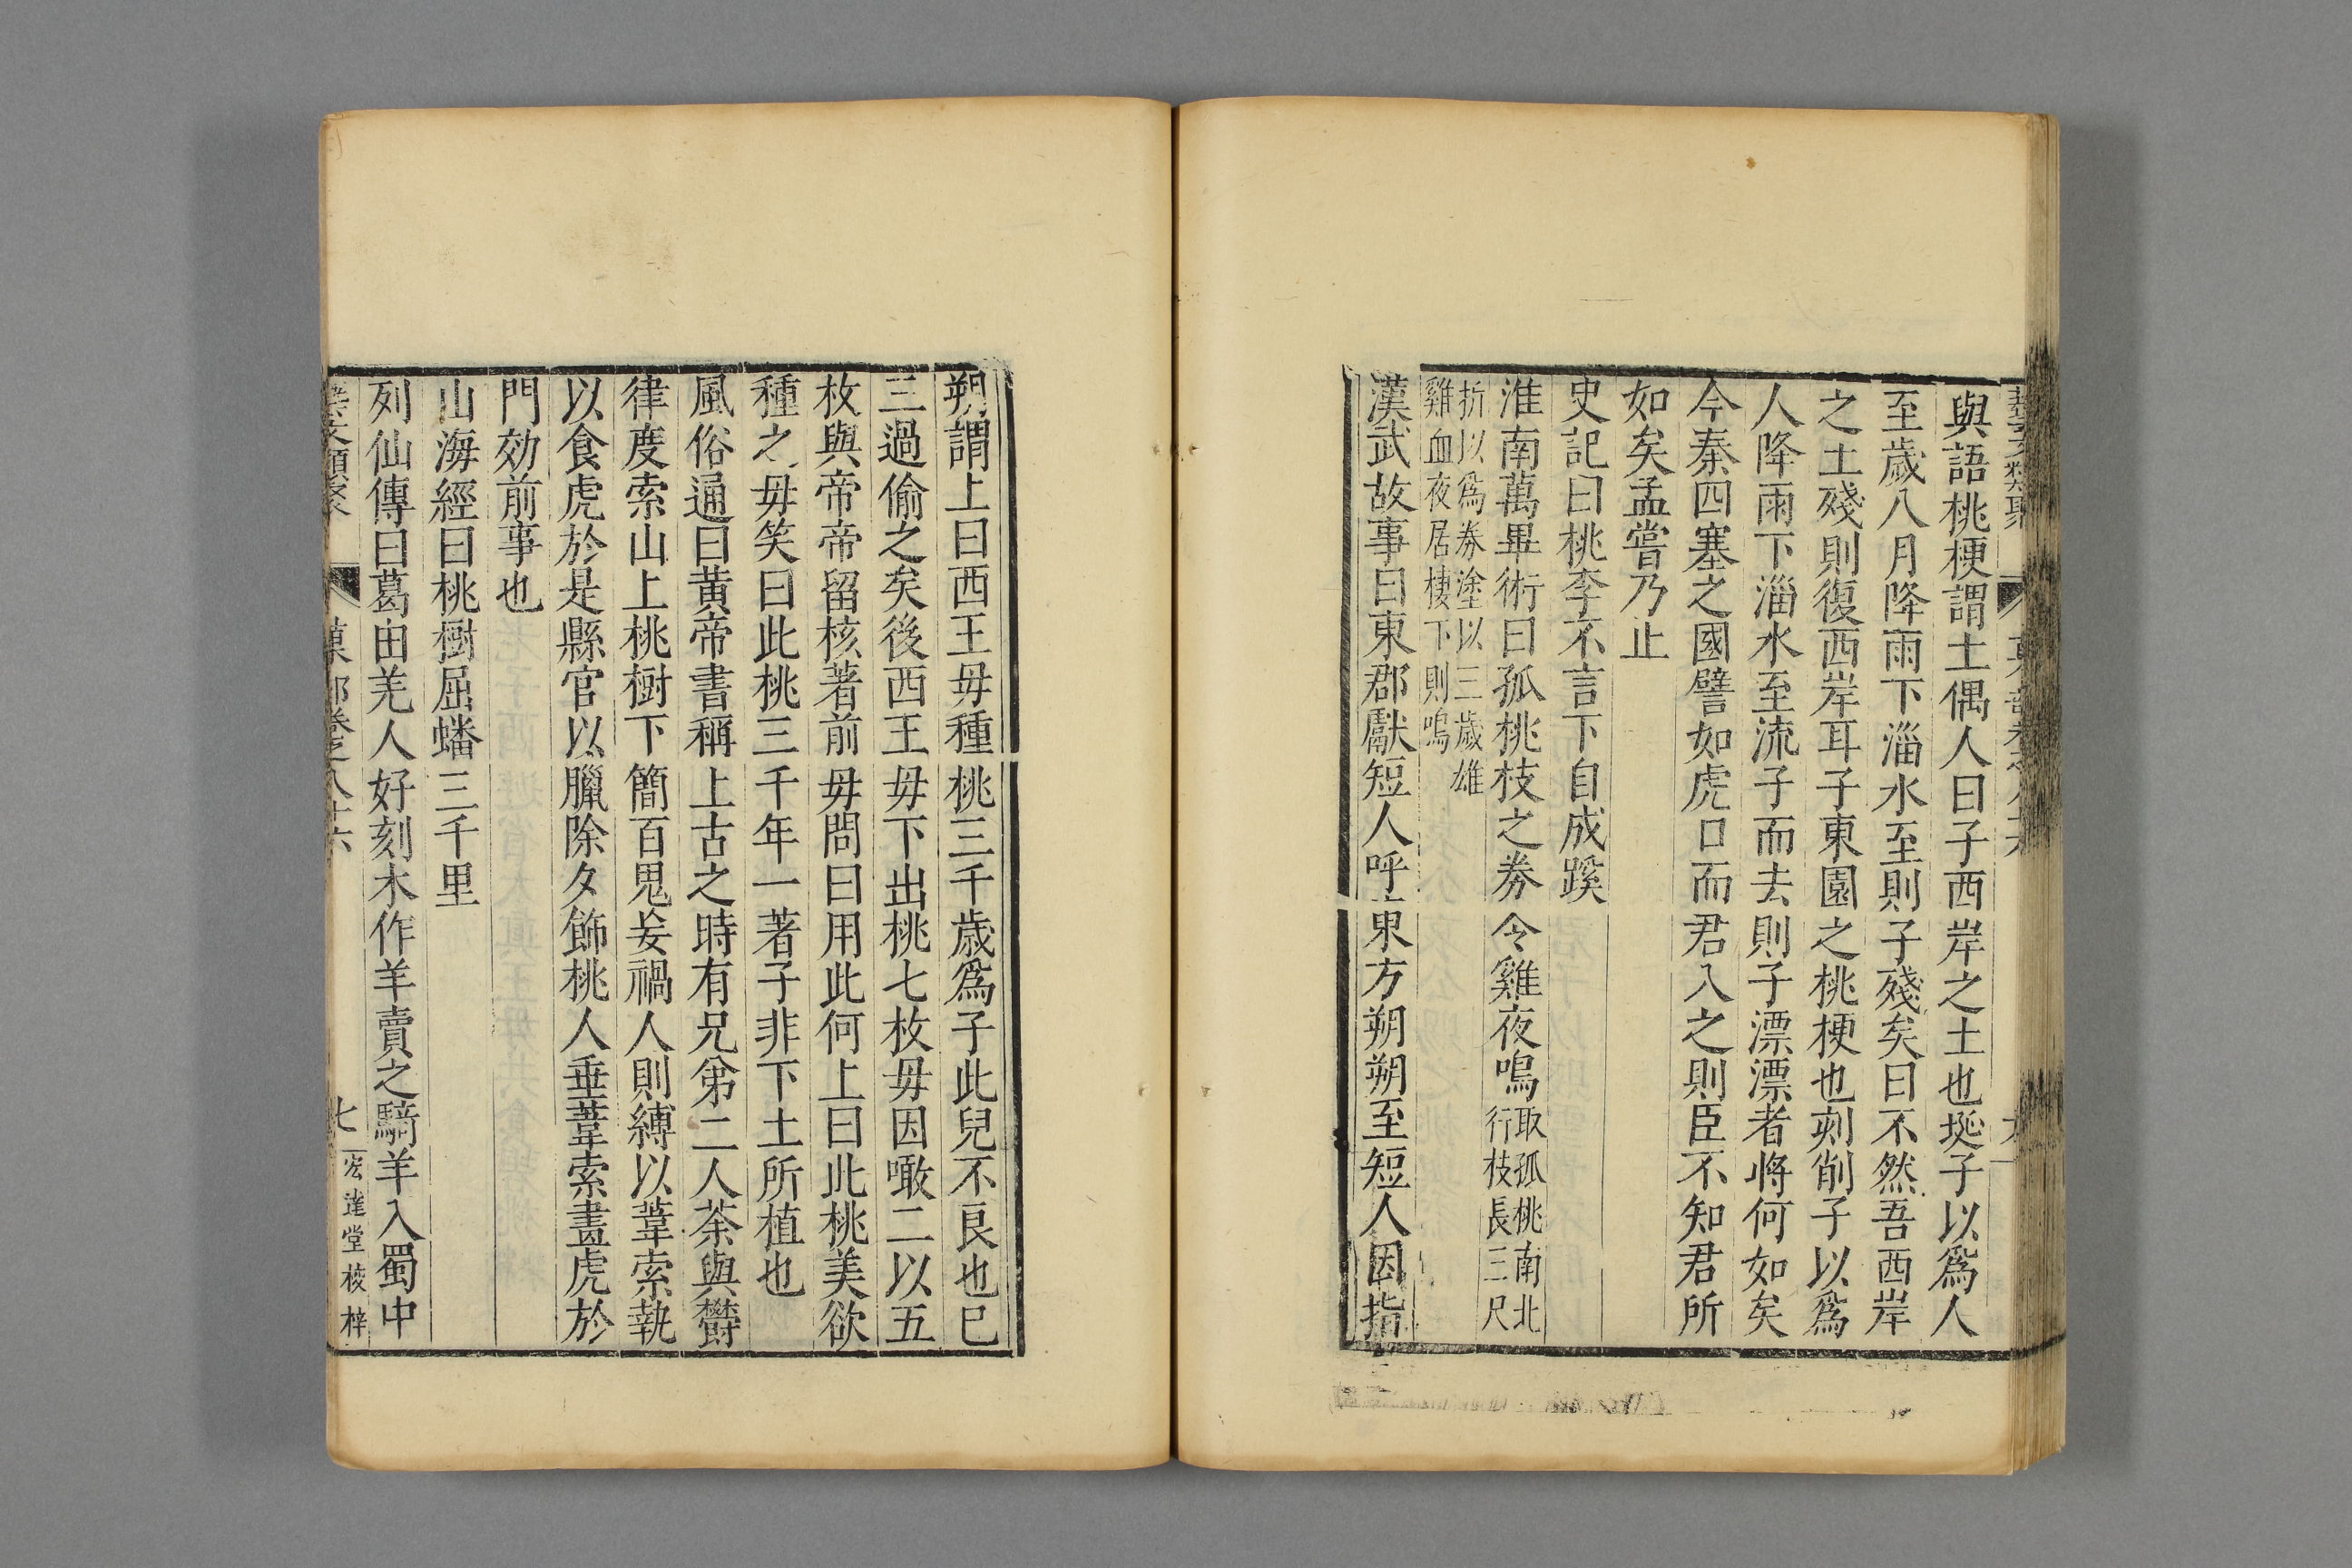 藝文類聚
與語桃梗謂土偶人曰子西岸之土也埏子以爲人
至歲八月降雨下淄水至則子殘矣曰不然吾西岸
之土殘則復西岸耳子東園之桃梗也刻削子以爲
人降雨下淄水至流子而去則子漂漂者將何如矣
今秦四塞之國譬如虎口而君入之則臣不知君所
如矣孟嘗乃止
史記曰桃李不言下自成蹊
淮南萬畢術曰孤桃枝之券令雞夜鳴
取孤桃南北
行枝長三尺
折以爲券塗以三歲雄
雞血夜居棲下則鳴
漢武故事曰東郡獻短人呼東方朔朔至短人因指
朔謂上曰西王毋種桃三千歲爲子此兒不良也巳
三過偷之矣後西王毋下出桃七枚毋因噉二以五
枚與帝帝留核著前毋問曰用此何上曰此桃美欲
種之毋笑曰此桃三千年一著子非下土所植也
風俗通曰黃帝書稱上古之時有兄弟二人荼與欝
律度索山上桃樹下簡百鬼妄禍人則縛以葦索執
以食虎於是縣官以臘除夕飾桃人垂葦索畫虎於
門効前事也
山海經曰桃樹屈蟠三千里
列仙傳曰葛由羌人好刻木作羊賣之騎羊入蜀中
藝文類聚 菓部卷之八十六 七 宏達堂校梓